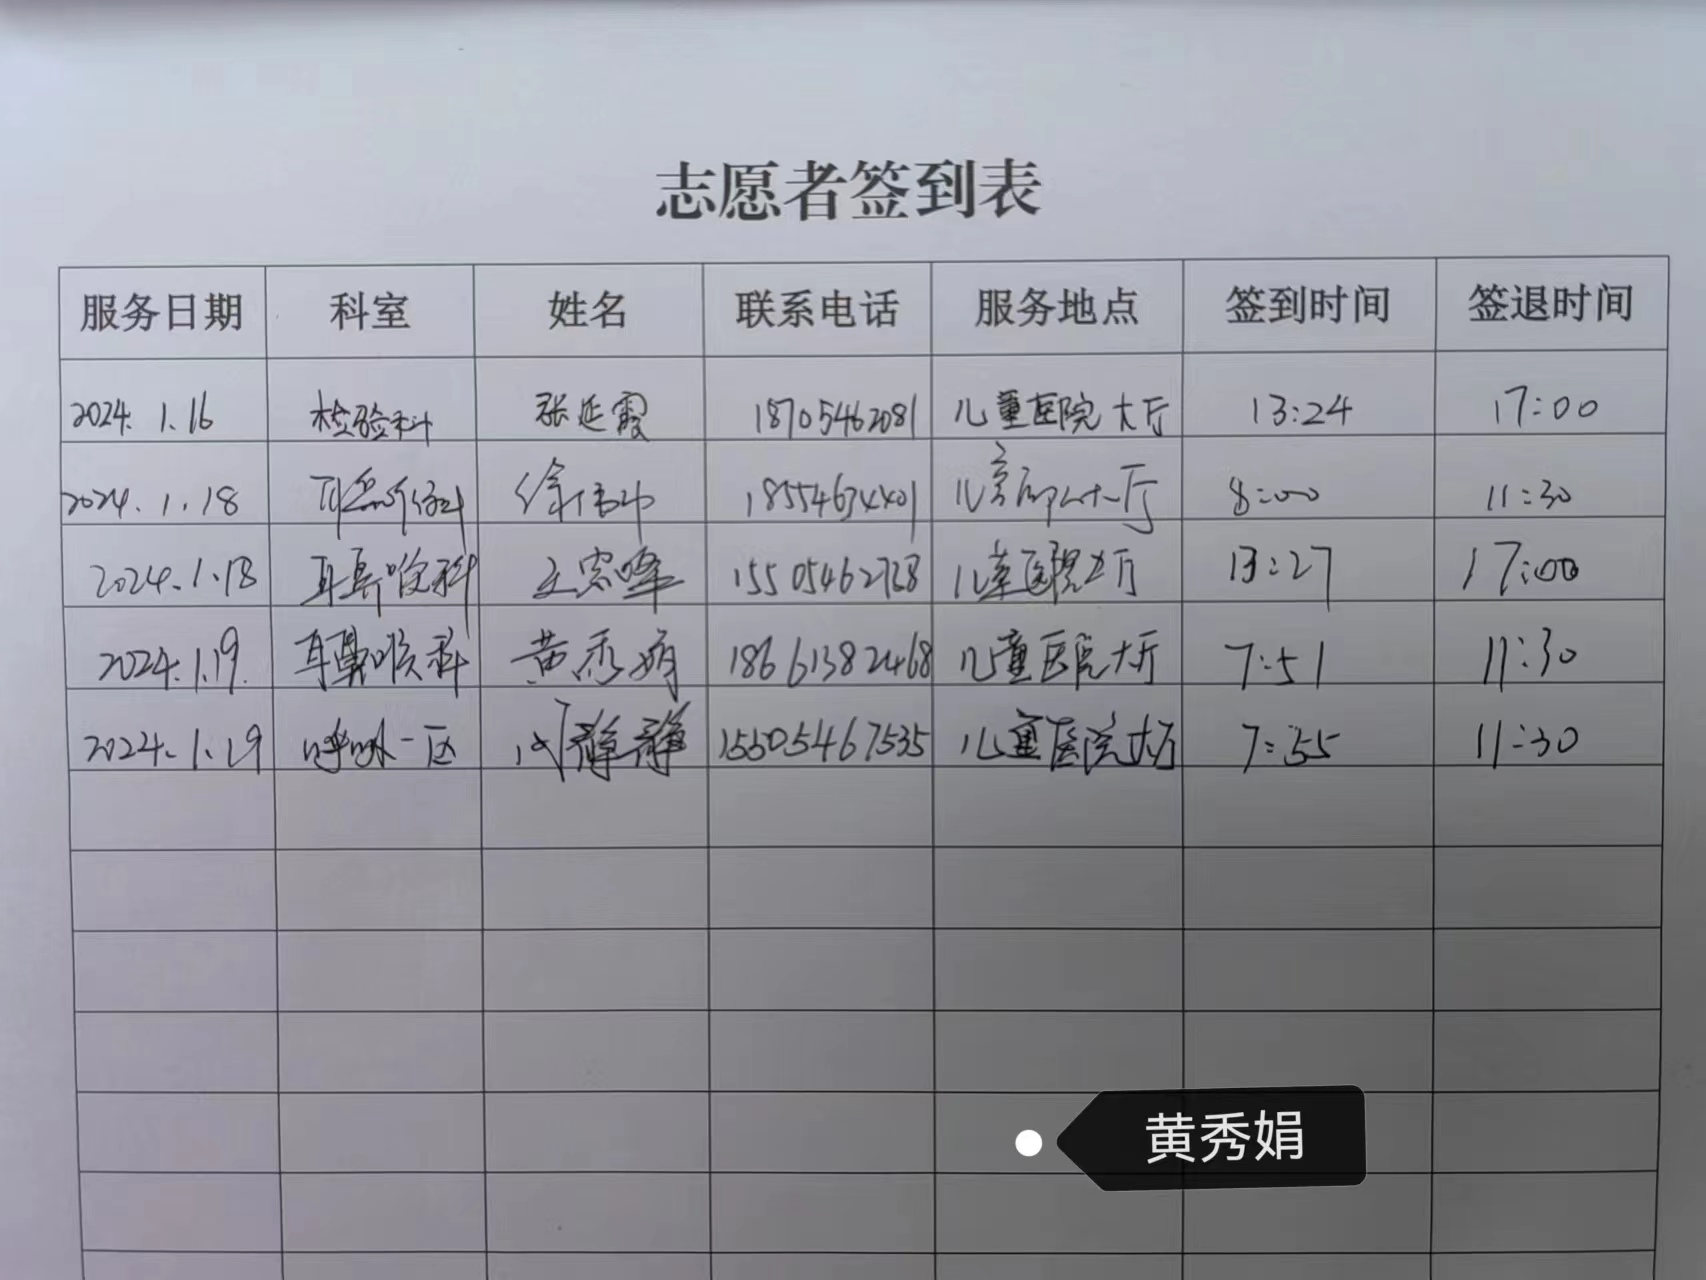 志愿者签到表
服务日期 科室 姓名 联系电话 服务地点 签到时间 签退时间
2024.1.16 检验科 张延霞 18705462081 儿童医院大厅 13:24 17:00
2024.1.18 耳鼻喉科 18554634401 儿童医院大厅 8:00 11:30
2024.1.18 耳鼻喉科 15505462768 儿童医院大厅 13:27 17:00
2024.1.19. 耳鼻喉科 黄秀娟 18661382468 儿童医院大厅 7:51 11:30
2024.1.19 呼吸一区 成静静 15505467535 儿童医院大厅 7:55 11:30
黄秀娟